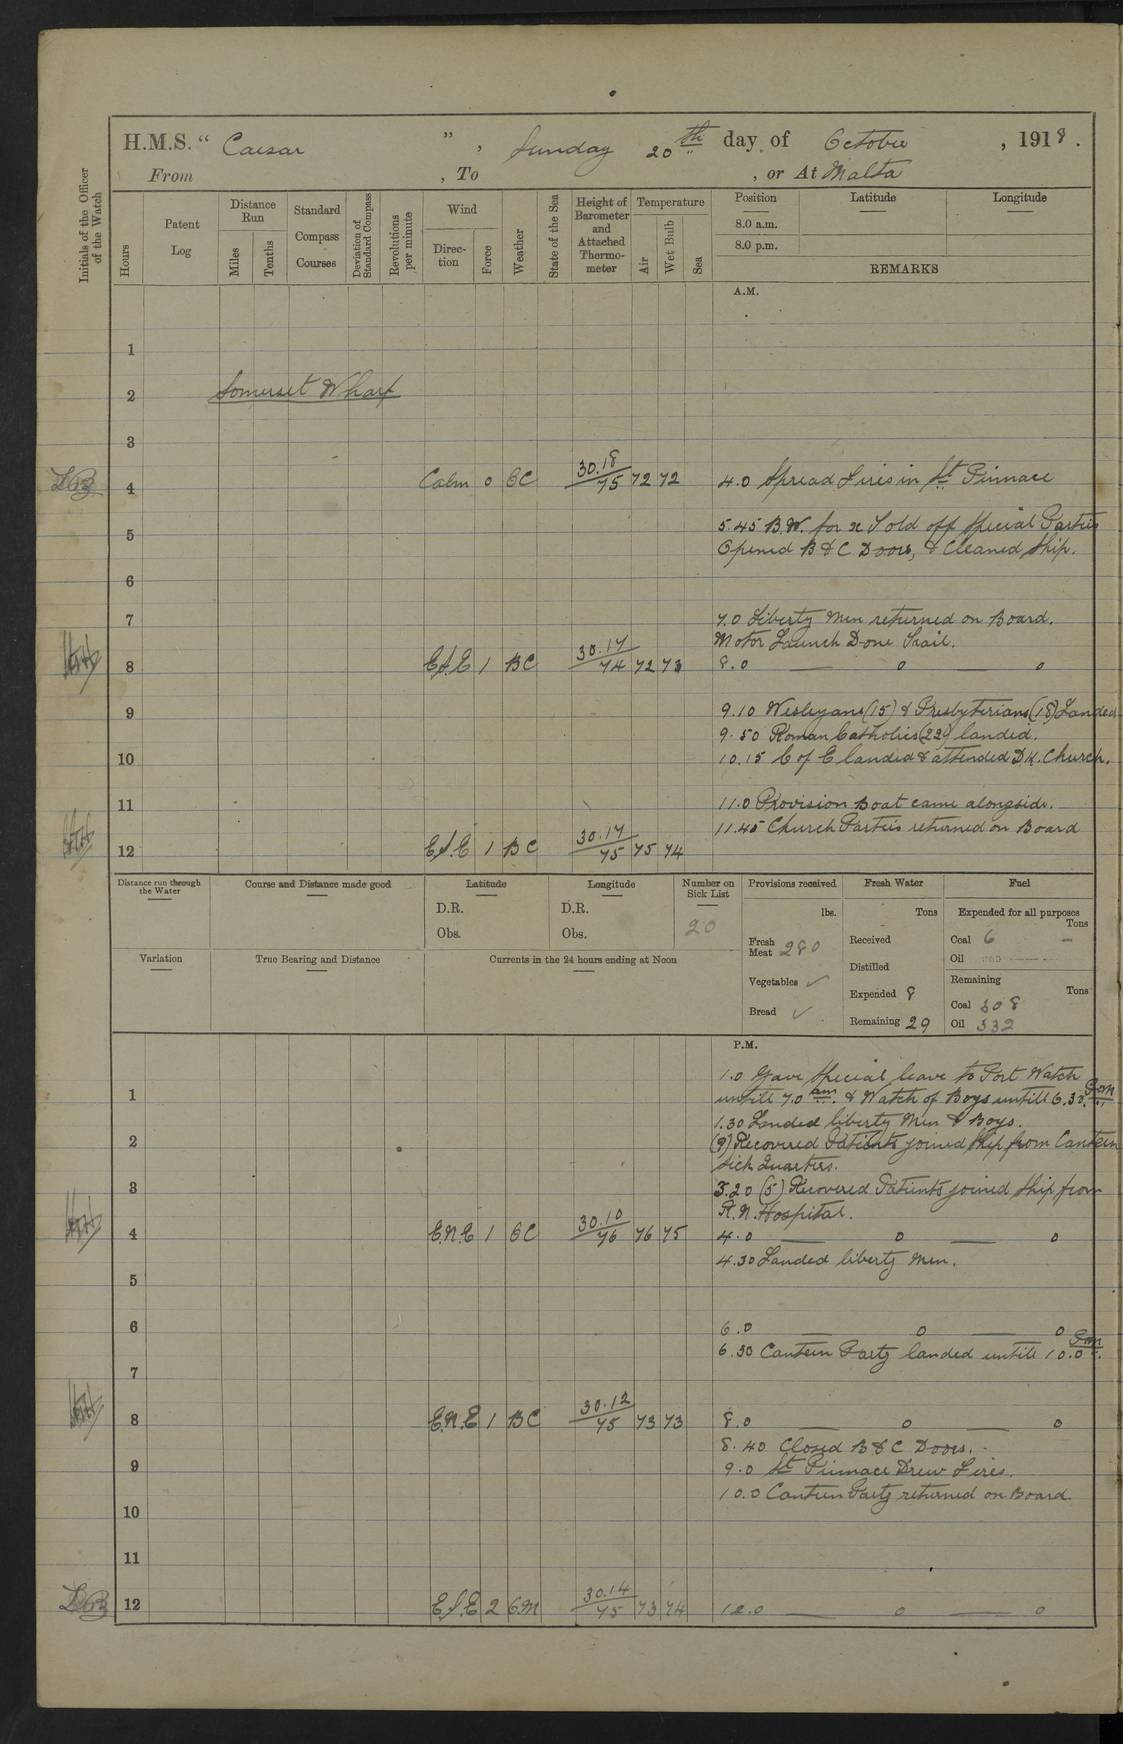 H.M.S. “ Caesar ” , Sunday 20th day of October , 1918 .
From , To , or At Malta
Initials of the Officer of the Watch
Hours
Patent Log
Distance Run
Miles
Tenths
Standard Compass Courses
Deviation of Standard Compass
Revolutions per minute
Wind
Direction
Force
Weather
State of the Sea
Height of Barometer and Attached Thermometer
Temperature
Air
Wet Bulb
Sea
Position Latitude Longitude
8.0 a.m.
8.0 p.m.
REMARKS
A.M.
1
2 Somerset Wharf
3
4 Calm 0 BC 30.18 / 75 72 72 4.0 Spread Fires in St. Pinnace
5 5.45 B.W. for x Told off Special Parties
Opened B & C Doors, & Cleaned Ship.
6
7 7.0 Liberty Men returned on Board.
Motor Launch Done Trail.
8 ESE 1 BC 30.17 / 74 72 73 8.0 — o — o
9 9.10 Wesleyans (15) & Presbyterians (18) Landed
9.50 Roman Catholics (22) landed.
10 10.15 C of E landed & attended Dk. Church.
11 11.0 Provision Boat came alongside.
11.45 Church Parties returned on Board
12 ESE 1 BC 30.17 / 75 75 74
Distance run through the Water
Course and Distance made good
Latitude
D.R.
Obs.
Longitude
D.R.
Obs.
Number on Sick List
20
Provisions received
lbs.
Fresh Meat 280
Vegetables ✓
Bread ✓
Fresh Water
Tons
Received
Distilled
Expended 8
Remaining 29
Fuel
Expended for all purposes
Tons
Coal 6 –
Oil
Remaining
Tons
Coal 308
Oil 332
Variation
True Bearing and Distance
Currents in the 24 hours ending at Noon
P.M.
1.0 Gave Special leave to Port Watch
1 untill 7.0 am. & Watch of Boys untill 6.30. Pm
1.30 Landed liberty Men & Boys.
2 (9) Recovered Patients joined Ship from Canteen
Sick Quarters.
3 3.20 (5) Recovered Patients joined Ship from
R.N. Hospital.
4 E.N.E 1 BC 30.10 / 76 76 75 4.0 — o — o
4.30 Landed liberty Men.
5
6 6.0 — o — o
6.30 Canteen Party landed untill 10.0 Pm.
7
8 E.N.E 1 BC 30.12 / 75 73 73 8.0 — o — o
8.40 Closed B & C Doors.
9 9.0 St Pinnace Drew Fires.
10.0 Canteen Party returned on Board.
10
11
12 ESE 2 CM 30.14 / 75 73 74 12.0 — o — o